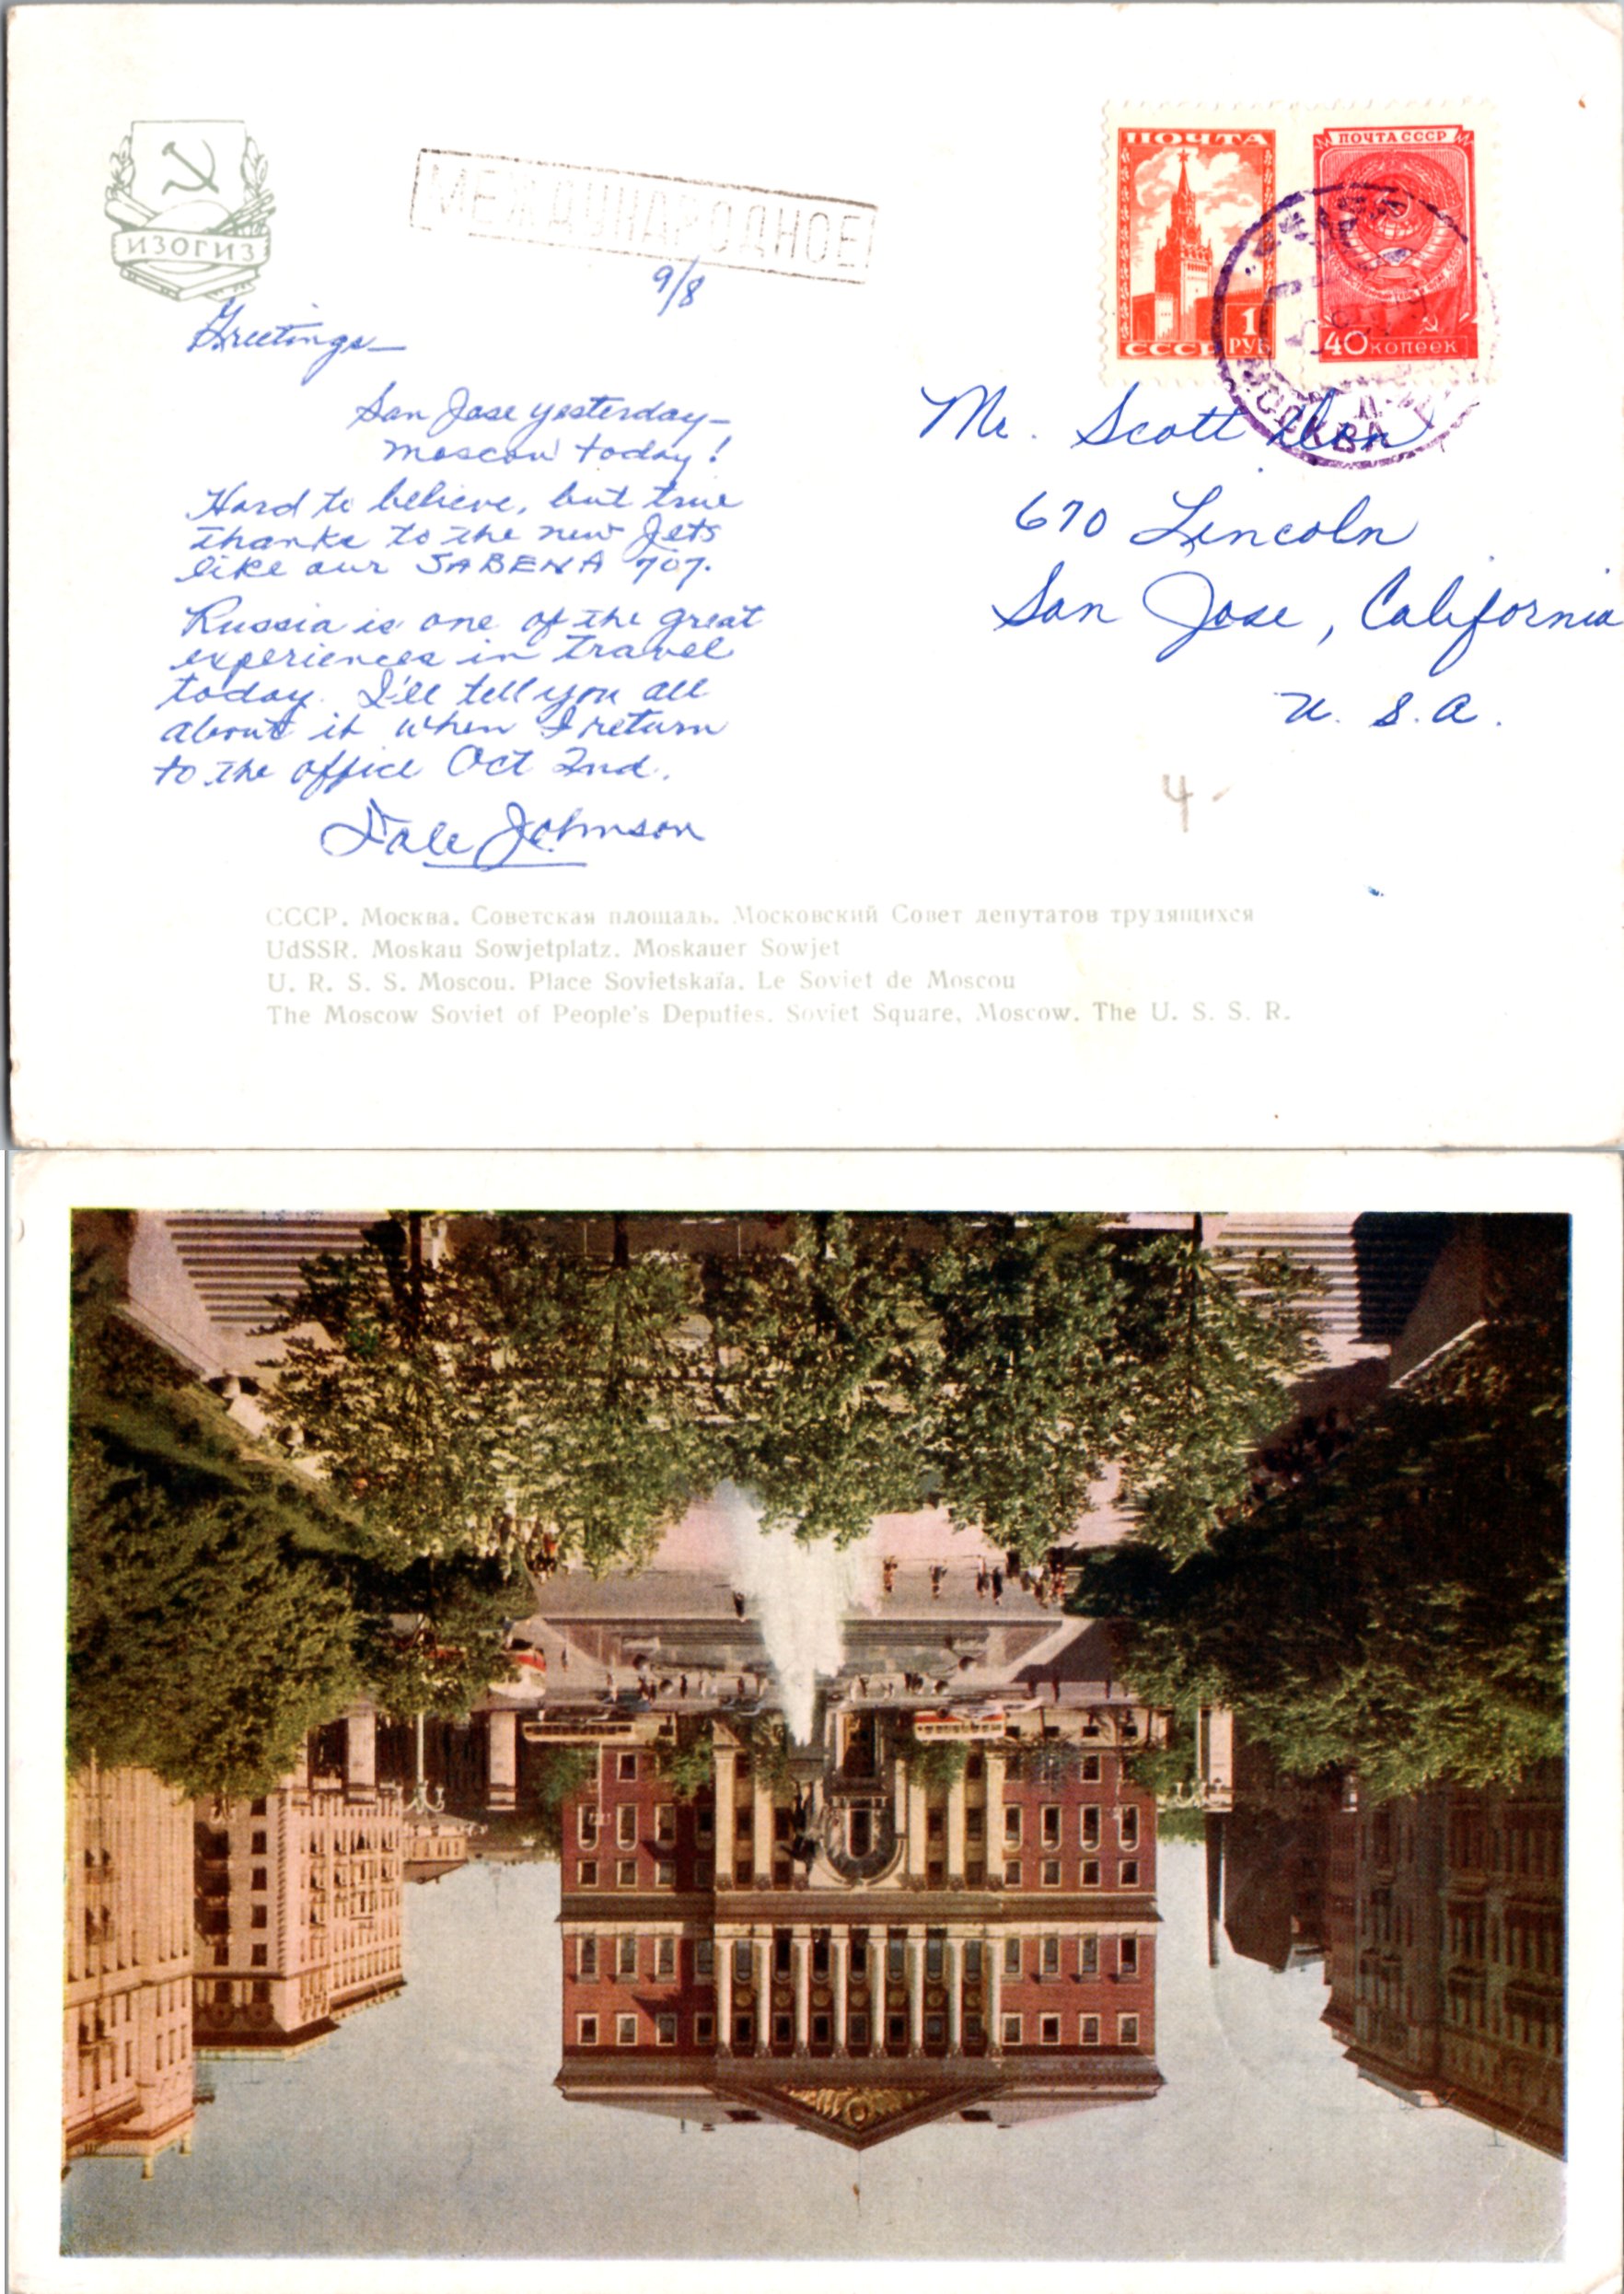 ИЗОГИЗ
МЕЖДУНАРОДНОЕ
ПОЧТА
1 РУБ
СССР
ПОЧТА СССР
40 КОПЕЕК
МОСКВА
9/8
Greetings—
San Jose yesterday—
Moscow today!
Hard to believe, but true
thanks to the new Jets
like our SABENA 707.
Russia is one of the great
experiences in travel
today. I'll tell you all
about it when I return
to the office Oct 2nd.
Dale Johnson
Mr. Scott
670 Lincoln
San Jose, California
U. S. A.
4-
СССР. Москва. Советская площадь. Московский Совет депутатов трудящихся
UdSSR. Moskau Sowjetplatz. Moskauer Sowjet
U. R. S. S. Moscou. Place Sovietskaïa. Le Soviet de Moscou
The Moscow Soviet of People's Deputies. Soviet Square, Moscow. The U. S. S. R.